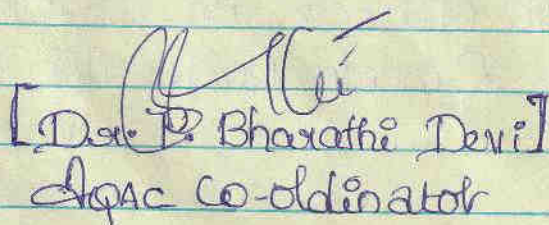 [Dr. P. Bharathi Devi]
IQAC Co-oldinator